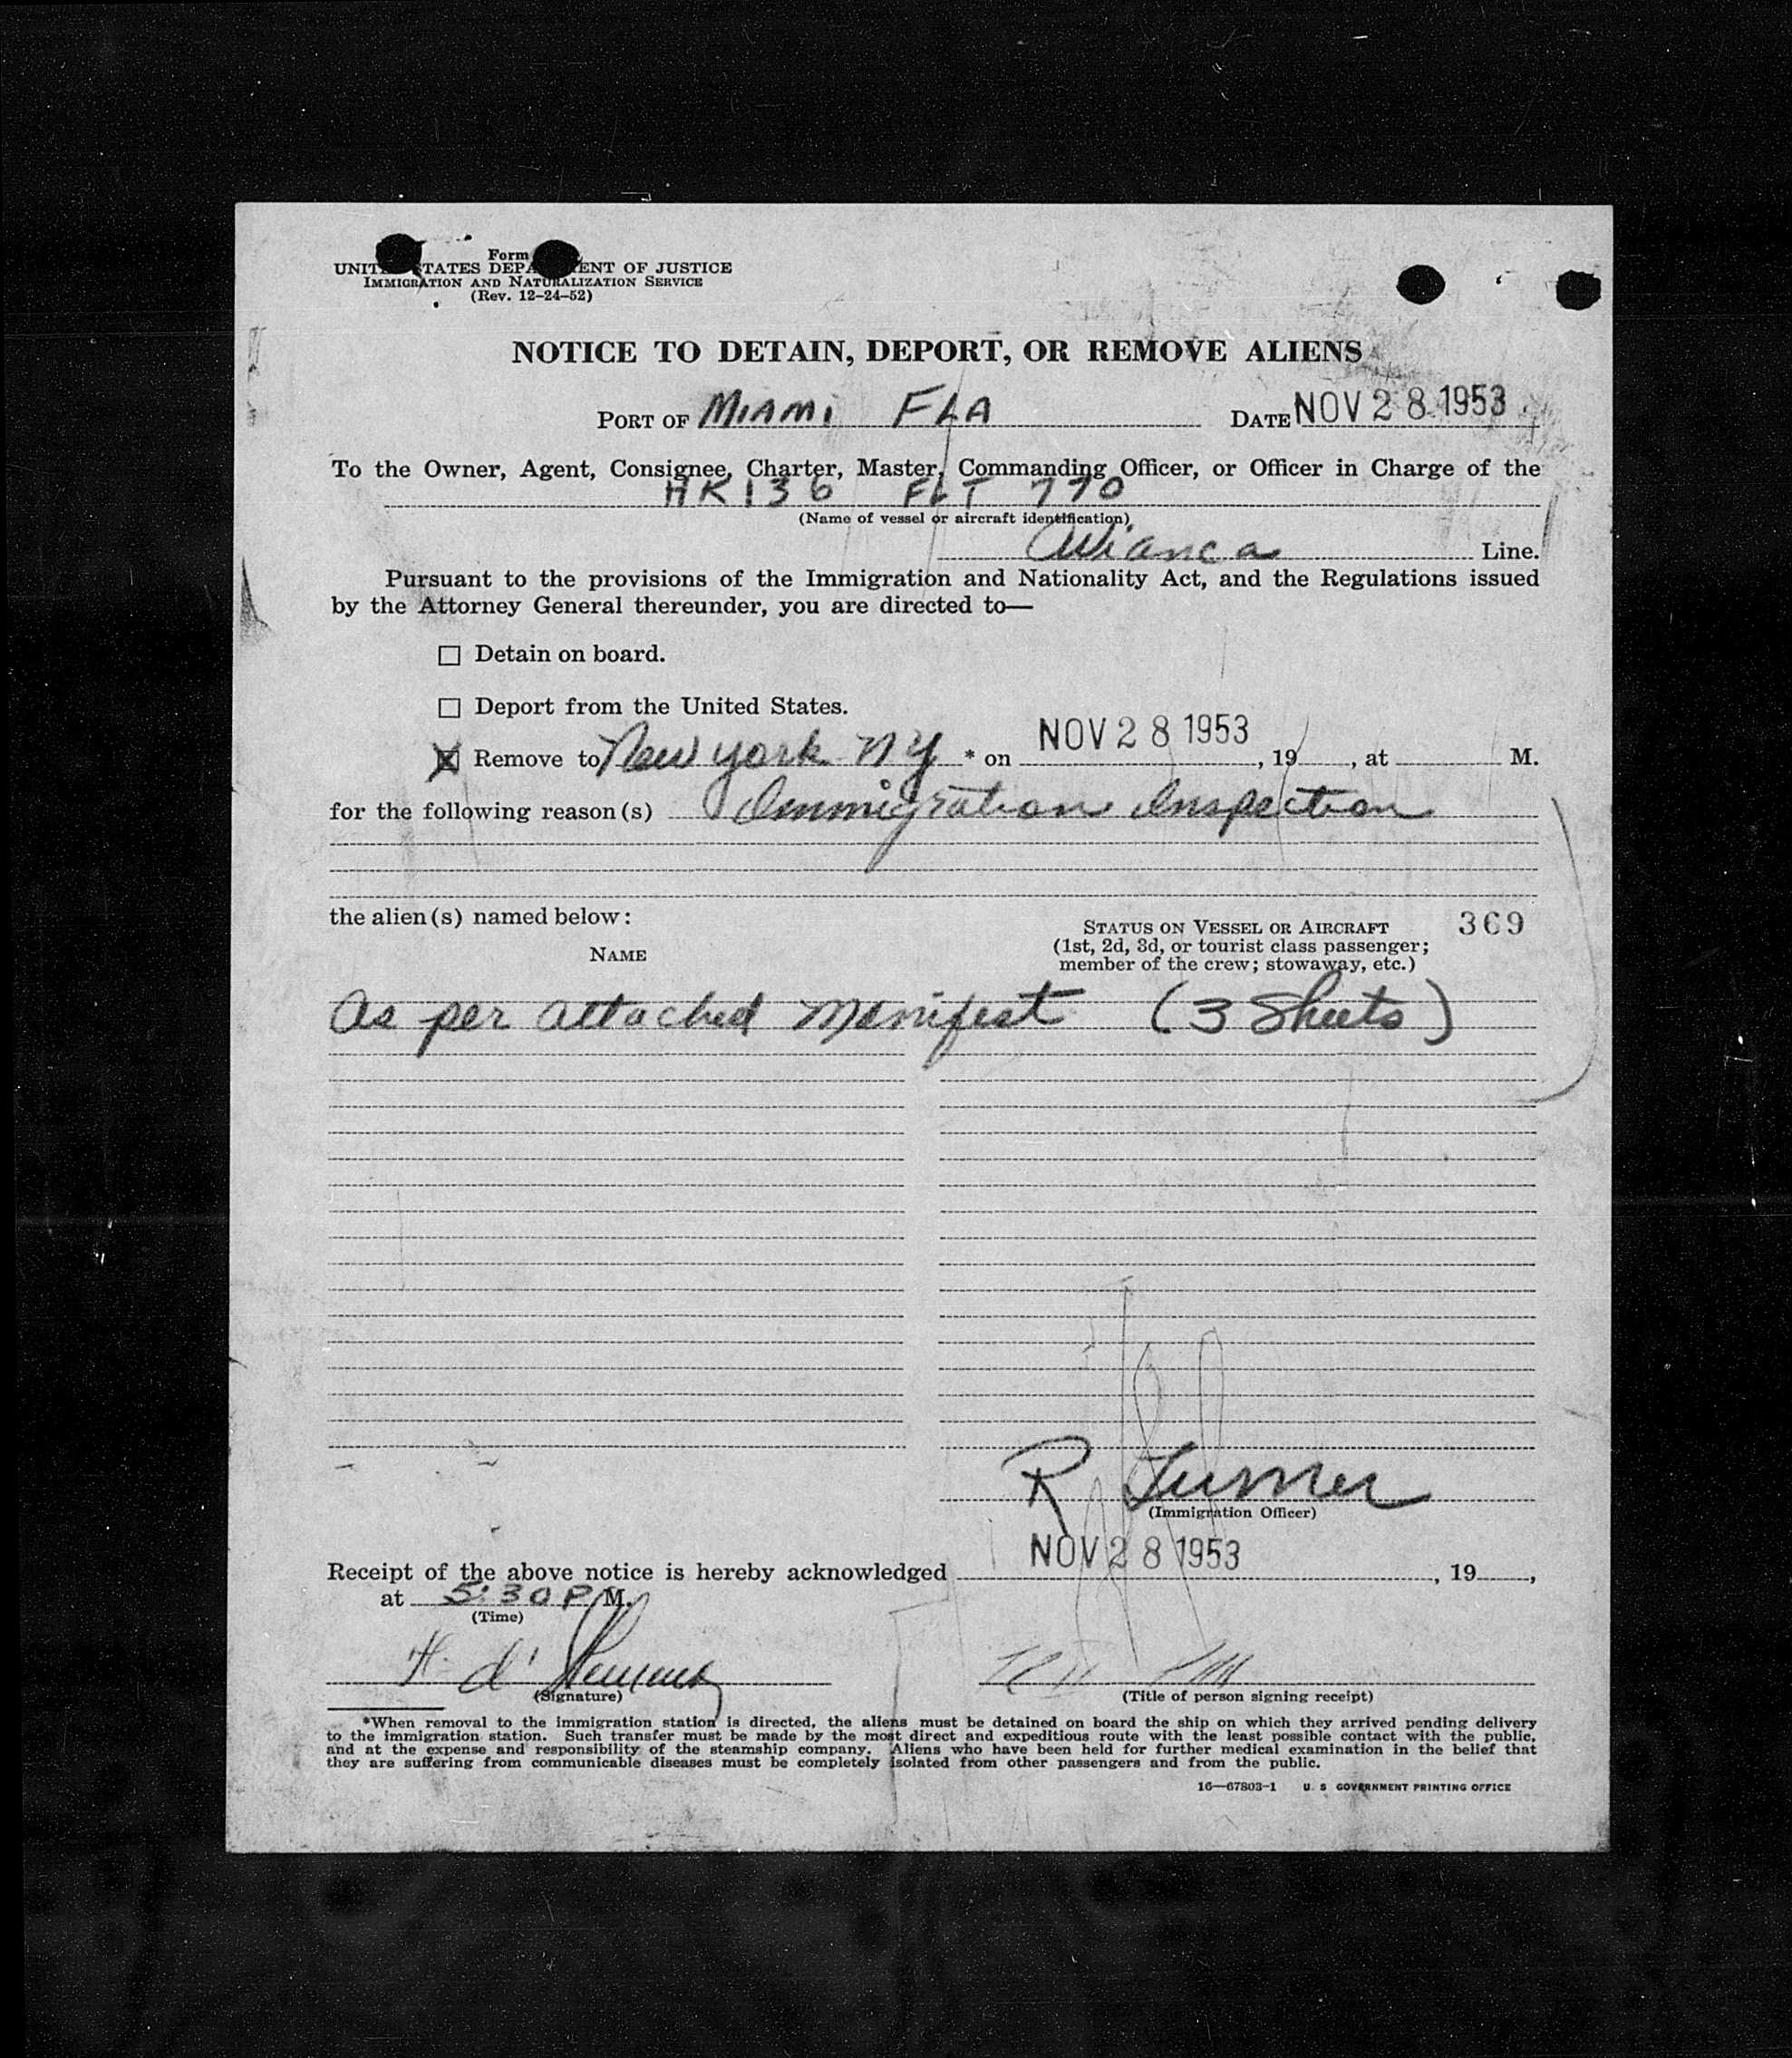 Form
UNITED STATES DEPARTMENT OF JUSTICE
IMMIGRATION AND NATURALIZATION SERVICE
(Rev. 12-24-52)
NOTICE TO DETAIN, DEPORT, OR REMOVE ALIENS
PORT OF MIAMI FLA DATE NOV 28 1953
To the Owner, Agent, Consignee, Charter, Master, Commanding Officer, or Officer in Charge of the
HK136 FLT 770
(Name of vessel or aircraft identification)
Avianca Line.
Pursuant to the provisions of the Immigration and Nationality Act, and the Regulations issued
by the Attorney General thereunder, you are directed to—
☐ Detain on board.
☐ Deport from the United States.
☒ Remove to New York NY * on NOV 28 1953, 19 , at M.
for the following reason(s) Immigration Inspection
the alien(s) named below:
STATUS ON VESSEL OR AIRCRAFT 369
NAME (1st, 2d, 3d, or tourist class passenger;
member of the crew; stowaway, etc.)
As per attached Manifest (3 Sheets)
R Turner
(Immigration Officer)
Receipt of the above notice is hereby acknowledged NOV 28 1953, 19 ,
at 5:30 P M.
(Time)
H. d'
(Signature) (Title of person signing receipt)
*When removal to the immigration station is directed, the aliens must be detained on board the ship on which they arrived pending delivery
to the immigration station. Such transfer must be made by the most direct and expeditious route with the least possible contact with the public,
and at the expense and responsibility of the steamship company. Aliens who have been held for further medical examination in the belief that
they are suffering from communicable diseases must be completely isolated from other passengers and from the public.
16—67803-1 U. S GOVERNMENT PRINTING OFFICE